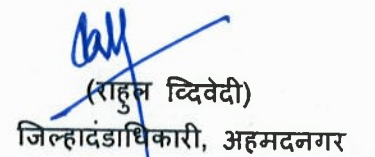 (राहुल व्दिवेदी)
जिल्हादंडाधिकारी, अहमदनगर